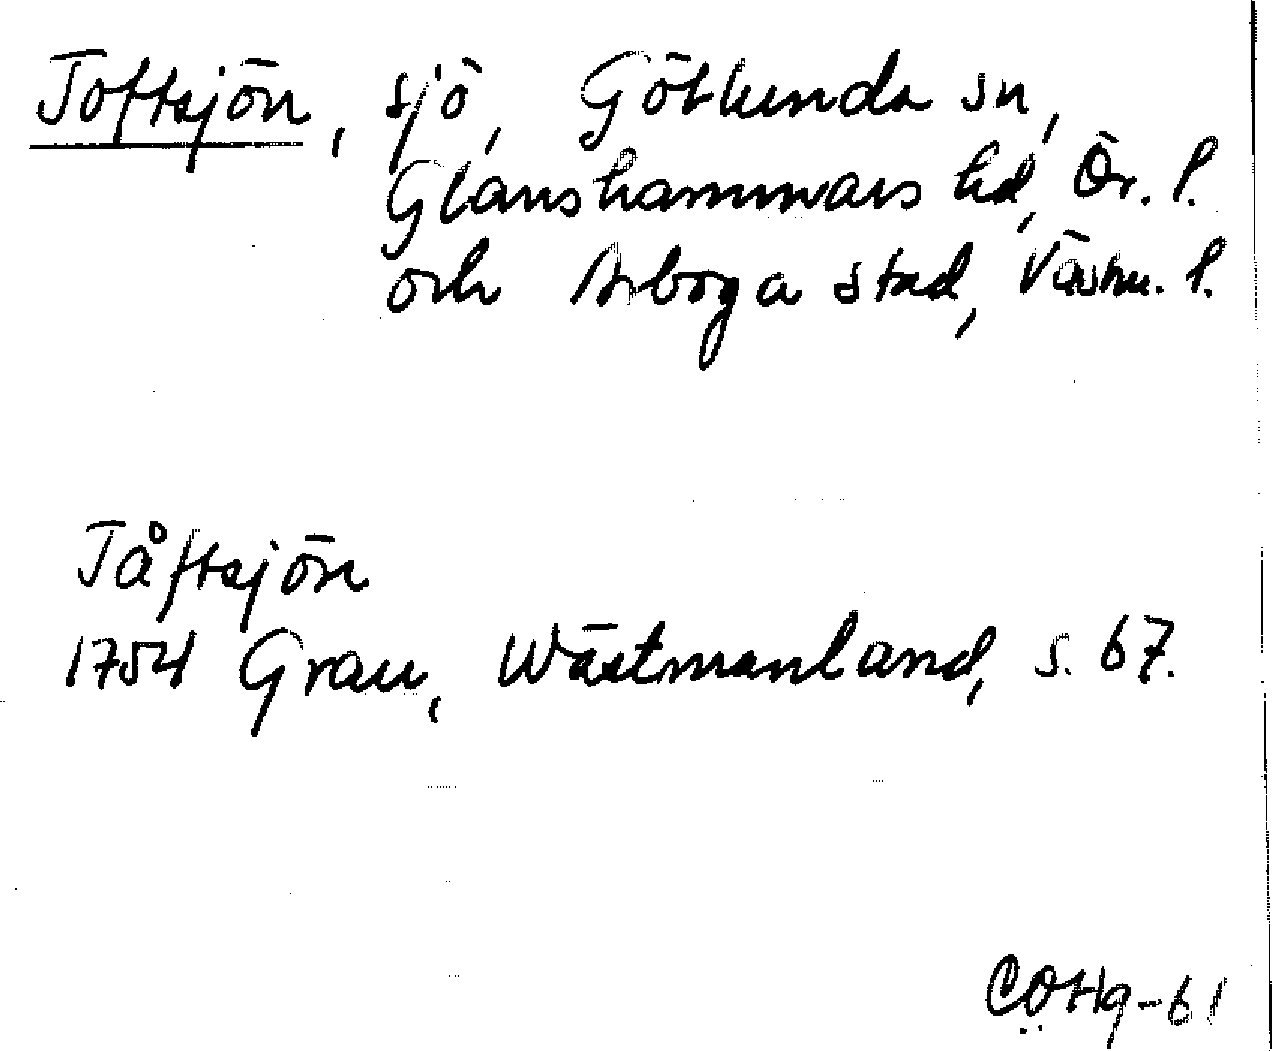 Toftsjön, sjö, Götlunda sn,
Glanshammars hd, Ör. l.
och Arboga stad, Västm. l.
Tåftsjön
1754 Grau, Wästmanland, s. 67.
CÖHg-61